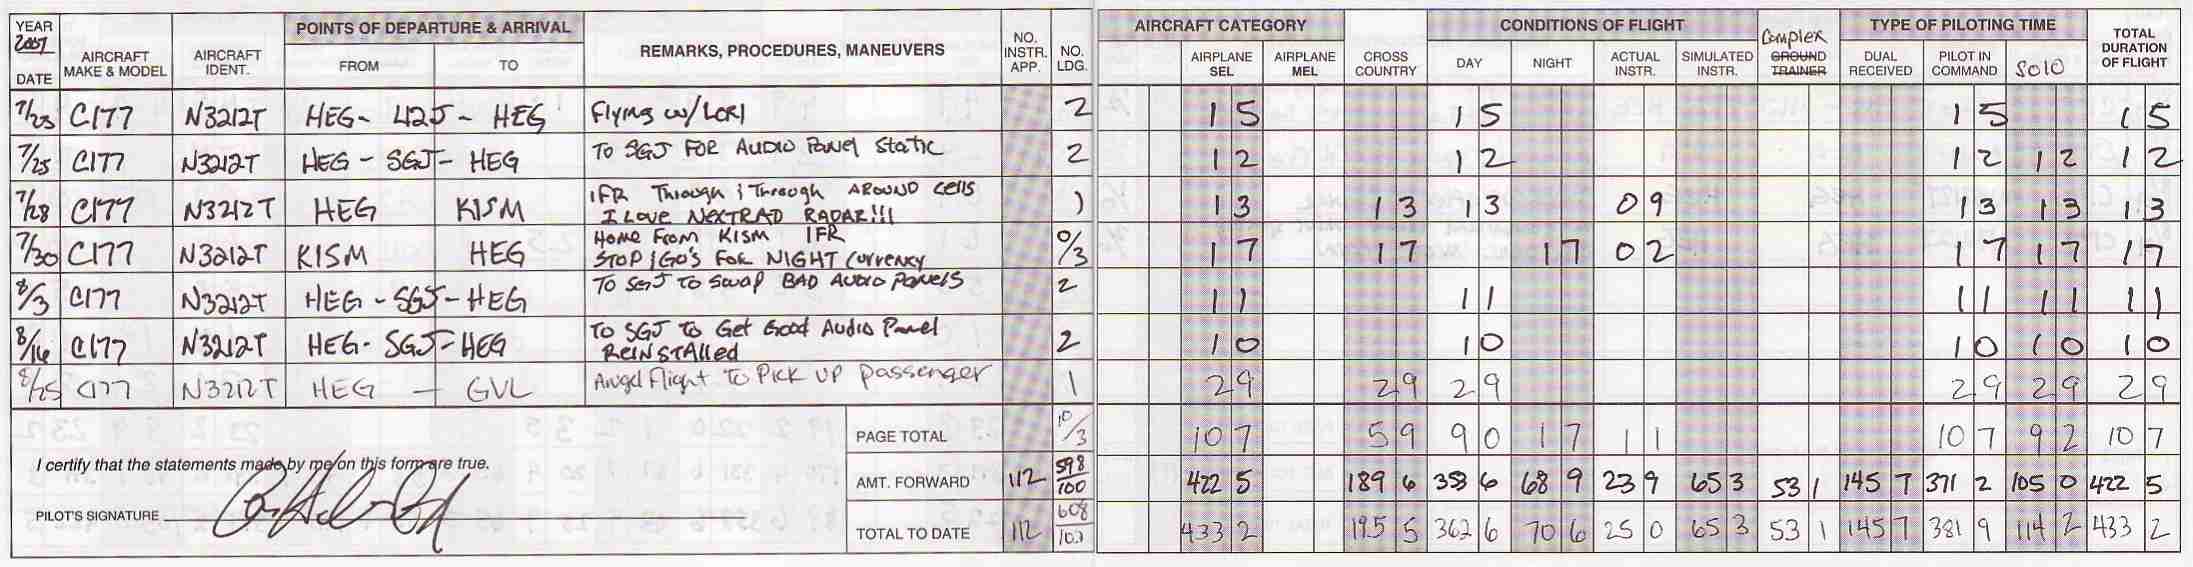 YEAR 2007 DATE AIRCRAFT MAKE & MODEL AIRCRAFT IDENT. POINTS OF DEPARTURE & ARRIVAL FROM TO REMARKS, PROCEDURES, MANEUVERS NO. INSTR. APP. NO. LDG. AIRCRAFT CATEGORY AIRPLANE SEL AIRPLANE MEL CROSS COUNTRY CONDITIONS OF FLIGHT DAY NIGHT ACTUAL INSTR. SIMULATED INSTR. Complex GROUND TRAINER TYPE OF PILOTING TIME DUAL RECEIVED PILOT IN COMMAND SOLO TOTAL DURATION OF FLIGHT
7/23 C177 N3212T HEG - 42J - HEG Flying w/LORI 2 1 5 1 5 1 5 1 5
7/25 C177 N3212T HEG - SGJ - HEG TO SGJ FOR AUDIO Panel Static 2 1 2 1 2 1 2 1 2 1 2
7/28 C177 N3212T HEG KISM IFR Through & Through AROUND Cells 1 1 3 1 3 1 3 0 9 1 3 1 3 1 3
I LOVE NEXTRAD RADAR!!!
7/30 C177 N3212T KISM HEG Home From KISM IFR 0/3 1 7 1 7 1 7 0 2 1 7 1 7 1 7
STOP/GO'S For NIGHT Currency
8/3 C177 N3212T HEG - SGJ - HEG TO SGJ TO Swap BAD Audio Panels 2 1 1 1 1 1 1 1 1 1 1
8/16 C177 N3212T HEG - SGJ - HEG TO SGJ To Get Good Audio Panel 2 1 0 1 0 1 0 1 0 1 0
REINSTAlled
8/25 C177 N3212T HEG - GVL Angel Flight To Pick UP passenger 1 2 9 2 9 2 9 2 9 2 9 2 9
PAGE TOTAL 10/3 10 7 5 9 9 0 1 7 1 1 10 7 9 2 10 7
I certify that the statements made by me on this form are true.
AMT. FORWARD 112 598/100 422 5 189 6 353 6 68 9 23 9 65 3 53 1 145 7 371 2 105 0 422 5
PILOT'S SIGNATURE
TOTAL TO DATE 112 608/103 433 2 195 5 362 6 70 6 25 0 65 3 53 1 145 7 381 9 114 2 433 2